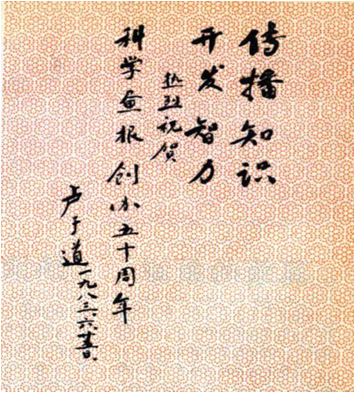 传播知识
开发智力
热烈祝贺
科学画报创办五十周年
卢于道一九八三、六、廿日